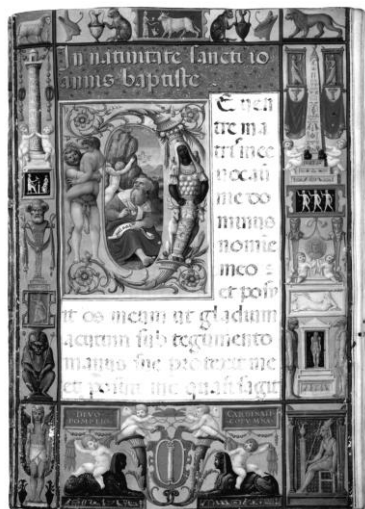 In natiuitate sancti io
annis baptiste
DE uen
tre ma
tris mee
uocaui
me do
minus
nomine
meo :
et posu
it os meum ut gladium
acutum sub tegumento
manus sue protexit me
et posuit me quasi sagit
DIVO
POMPEIO
CARDINALI